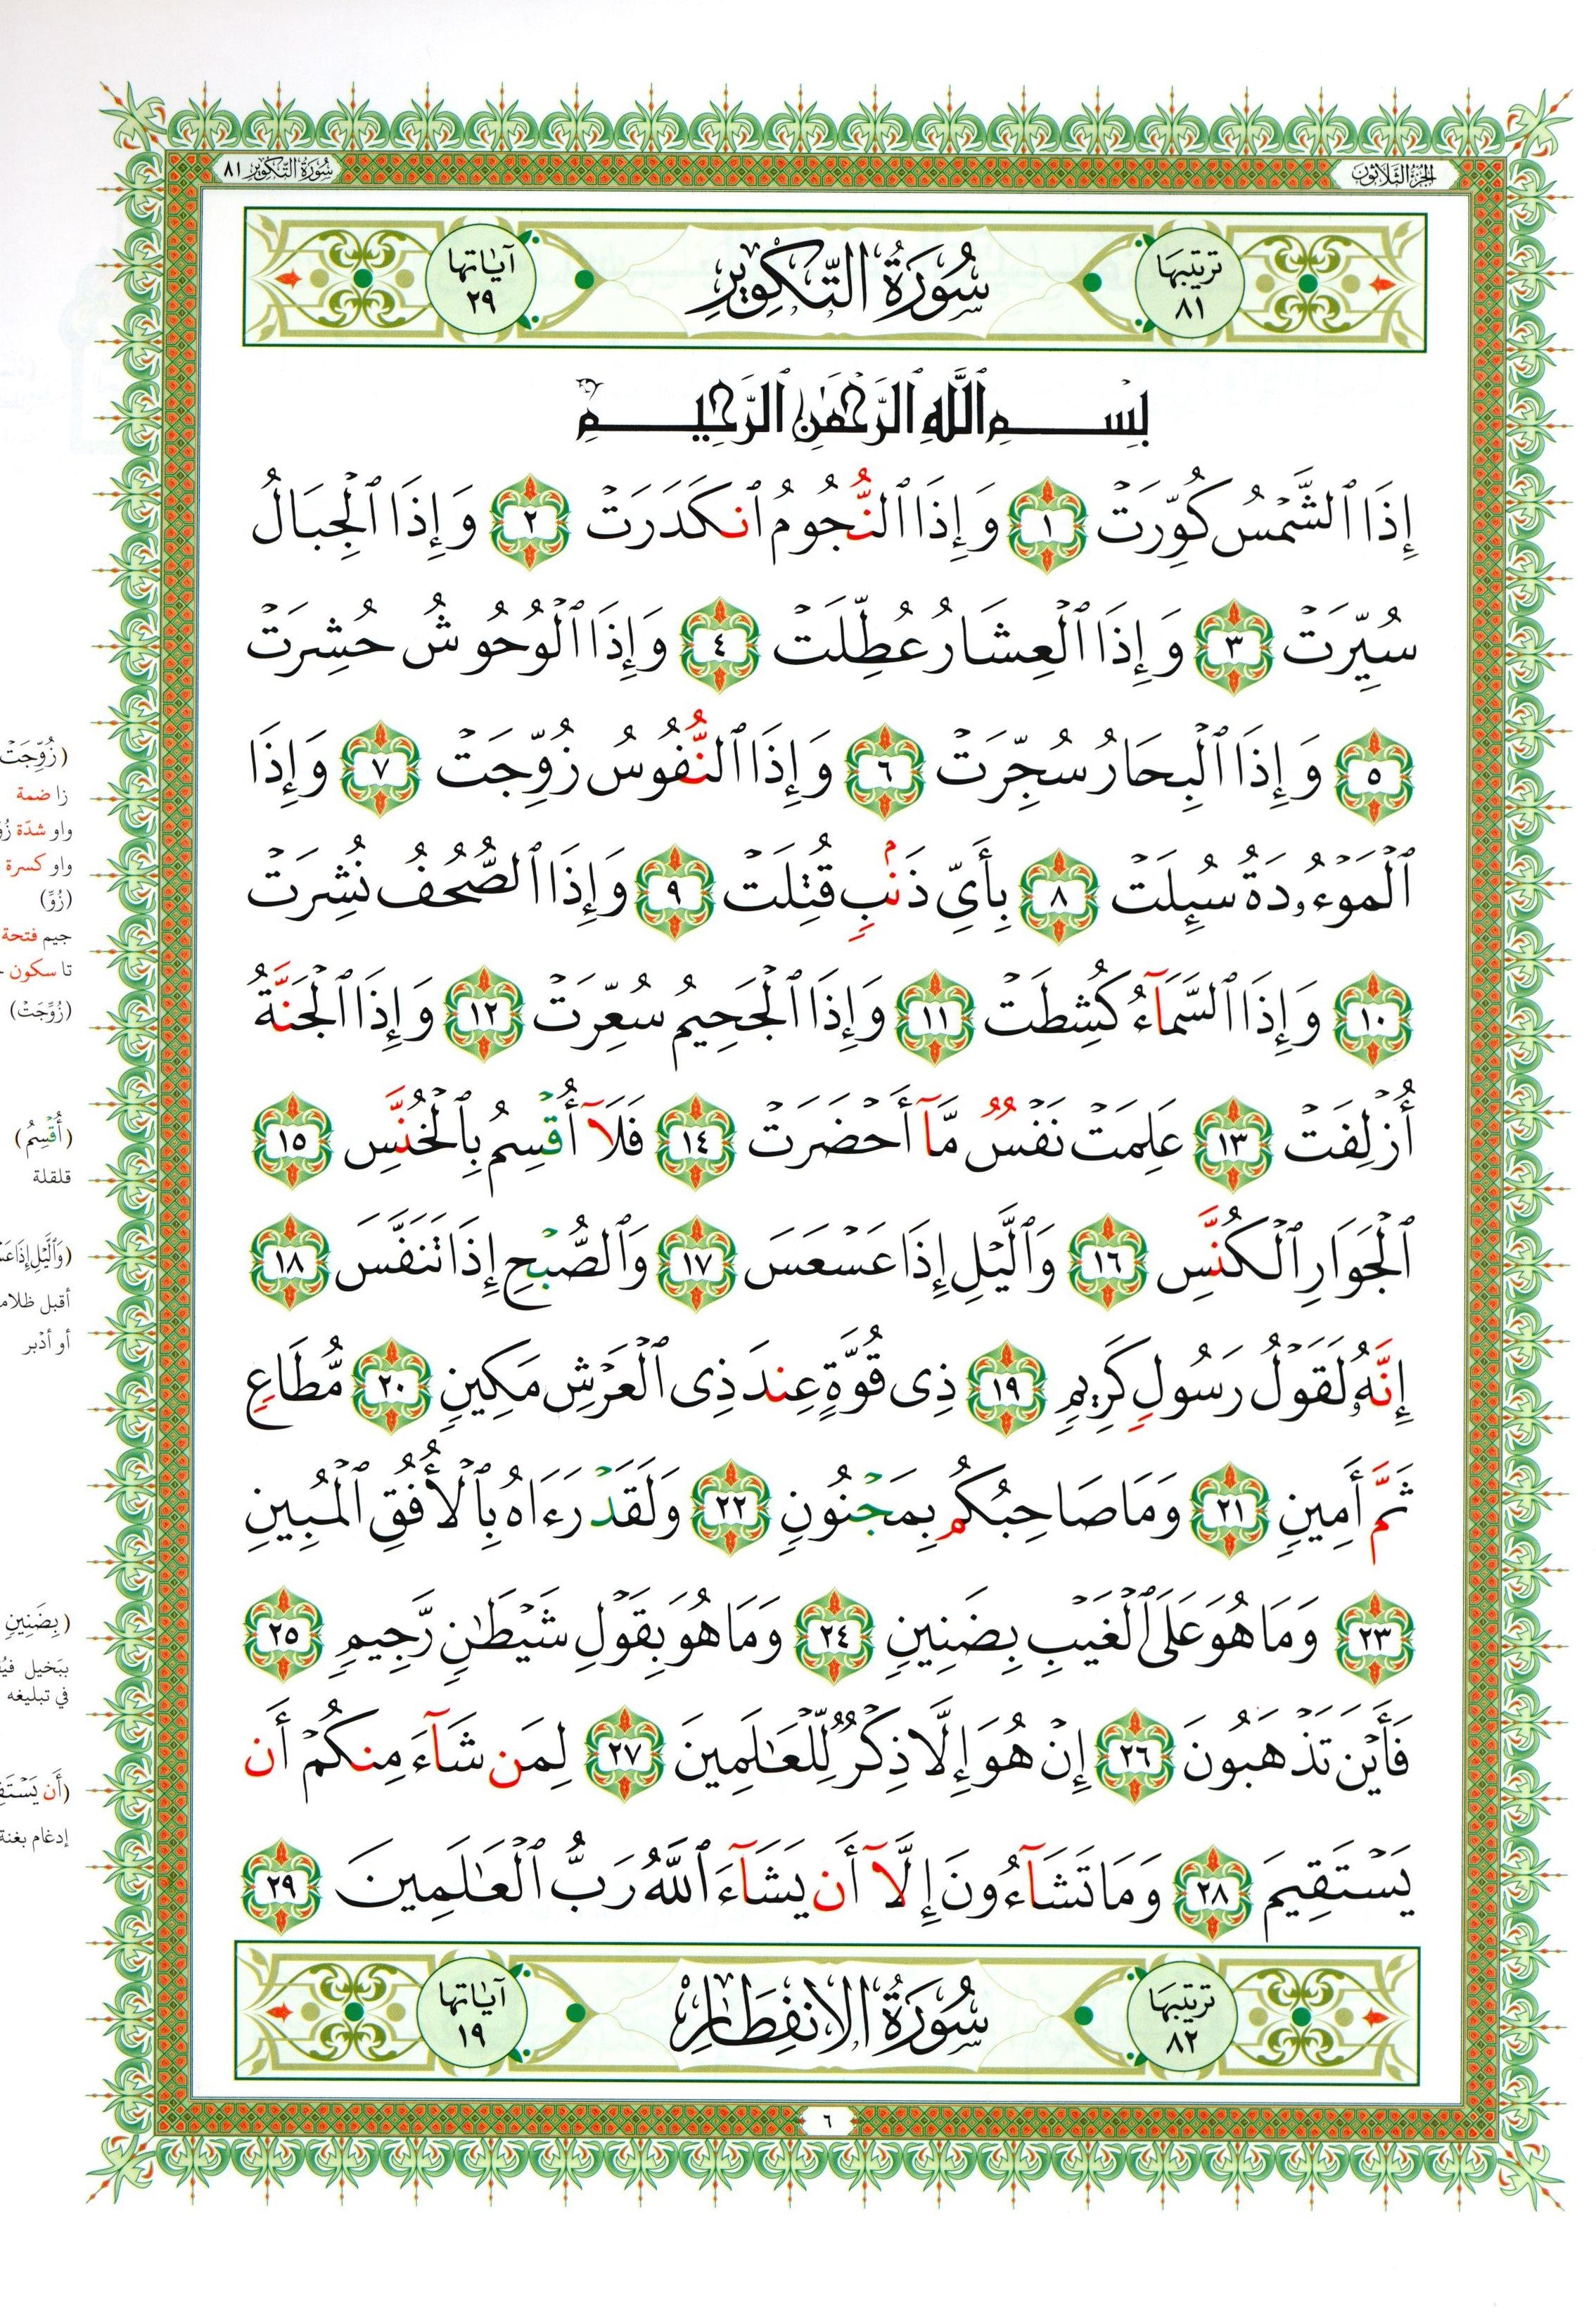 الجزء الثلاثون
سُورَةُ التَّكْوِيرِ ٨١
ترتيبها ٨١
سُورَةُ التَّكْوِيرِ
آياتها ٢٩
بِسْمِ ٱللَّهِ ٱلرَّحْمَٰنِ ٱلرَّحِيمِ
إِذَا ٱلشَّمْسُ كُوِّرَتْ ١ وَإِذَا ٱلنُّجُومُ ٱنكَدَرَتْ ٢ وَإِذَا ٱلْجِبَالُ
سُيِّرَتْ ٣ وَإِذَا ٱلْعِشَارُ عُطِّلَتْ ٤ وَإِذَا ٱلْوُحُوشُ حُشِرَتْ
٥ وَإِذَا ٱلْبِحَارُ سُجِّرَتْ ٦ وَإِذَا ٱلنُّفُوسُ زُوِّجَتْ ٧ وَإِذَا
ٱلْمَوْءُۥدَةُ سُئِلَتْ ٨ بِأَىِّ ذَنۢبٍ قُتِلَتْ ٩ وَإِذَا ٱلصُّحُفُ نُشِرَتْ
١٠ وَإِذَا ٱلسَّمَآءُ كُشِطَتْ ١١ وَإِذَا ٱلْجَحِيمُ سُعِّرَتْ ١٢ وَإِذَا ٱلْجَنَّةُ
أُزْلِفَتْ ١٣ عَلِمَتْ نَفْسٌ مَّآ أَحْضَرَتْ ١٤ فَلَآ أُقْسِمُ بِٱلْخُنَّسِ ١٥
ٱلْجَوَارِ ٱلْكُنَّسِ ١٦ وَٱلَّيْلِ إِذَا عَسْعَسَ ١٧ وَٱلصُّبْحِ إِذَا تَنَفَّسَ ١٨
إِنَّهُۥ لَقَوْلُ رَسُولٍ كَرِيمٍ ١٩ ذِى قُوَّةٍ عِندَ ذِى ٱلْعَرْشِ مَكِينٍ ٢٠ مُّطَاعٍ
ثَمَّ أَمِينٍ ٢١ وَمَا صَاحِبُكُم بِمَجْنُونٍ ٢٢ وَلَقَدْ رَءَاهُ بِٱلْأُفُقِ ٱلْمُبِينِ
٢٣ وَمَا هُوَ عَلَى ٱلْغَيْبِ بِضَنِينٍ ٢٤ وَمَا هُوَ بِقَوْلِ شَيْطَٰنٍ رَّجِيمٍ ٢٥
فَأَيْنَ تَذْهَبُونَ ٢٦ إِنْ هُوَ إِلَّا ذِكْرٌ لِّلْعَٰلَمِينَ ٢٧ لِمَن شَآءَ مِنكُمْ أَن
يَسْتَقِيمَ ٢٨ وَمَا تَشَآءُونَ إِلَّآ أَن يَشَآءَ ٱللَّهُ رَبُّ ٱلْعَٰلَمِينَ ٢٩
ترتيبها ٨٢
سُورَةُ الانفِطَارِ
آياتها ١٩
٦
(زُوِّجَتْ
زا ضمة
واو شدّة
واو كسرة
(زُوِّ)
جيم فتحة
تا سكون
(زُوِّجَتْ)
(أُقْسِمُ)
قلقلة
(وَٱلَّيْلِ إِذَا
أقبل
أو أدبر
(بِضَنِينٍ
ببخيل
في تبليغه
(أَن
إدغام بغنة